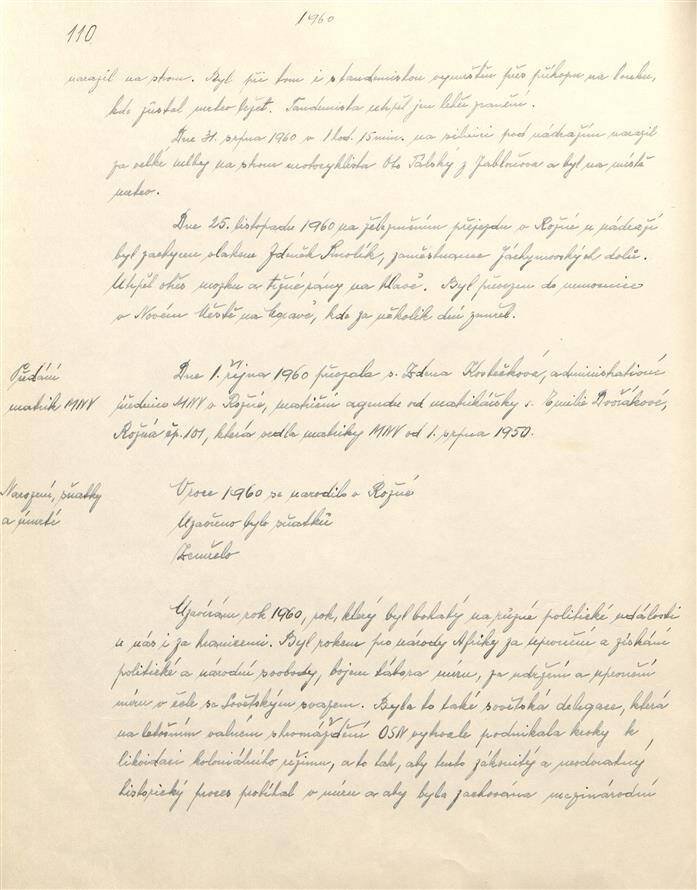 1960
110
narazil na strom. Byl při tom i s tandemistou vymrštěn přes příkopu na louku,
kde zůstal mrtev ležet. Tandemista utrpěl jen lehčí zranění.
Dne 31. srpna 1960 v 1 hod. 15 min. na silnici pod nádražím narazil
za velké mlhy na strom motocyklista Oto Tálský z Jabloňova a byl na místě
mrtev.
Dne 25. listopadu 1960 na železničním přejezdu v Rožné u nádraží
byl zachycen vlakem Zdeněk Smolík, zaměstnanec Jáchymovských dolů.
Utrpěl otřes mozku a tržné rány na hlavě. Byl převezen do nemocnice
v Novém Městě na Moravě, kde za několik dní zemřel.
Předání
matrik MNV
Dne 1. října 1960 převzala s. Zdena Kostečková, administrativní
úřednice MNV v Rožné, matriční agendu od matrikářky s. Emilie Dvořákové,
Rožná čp. 101, která vedla matriky MNV od 1. srpna 1950.
Narození, sňatky
a úmrtí
V roce 1960 se narodilo v Rožné
Uzavřeno bylo sňatků
Zemřelo
Uzavírám rok 1960, rok, který byl bohatý na různé politické události
u nás i za hranicemi. Byl rokem pro národy Afriky za upevnění a získání
politické a národní svobody, bojem tábora míru, za udržení a upevnění
míru v čele se Sovětským svazem. Byla to také sovětská delegace, která
na letošním valném shromáždění OSN vykonala podnikala kroky k
likvidaci koloniálního režimu, a to tak, aby tento zákonitý a neodvratný
historický proces probíhal v míru a aby byla zachována mezinárodní